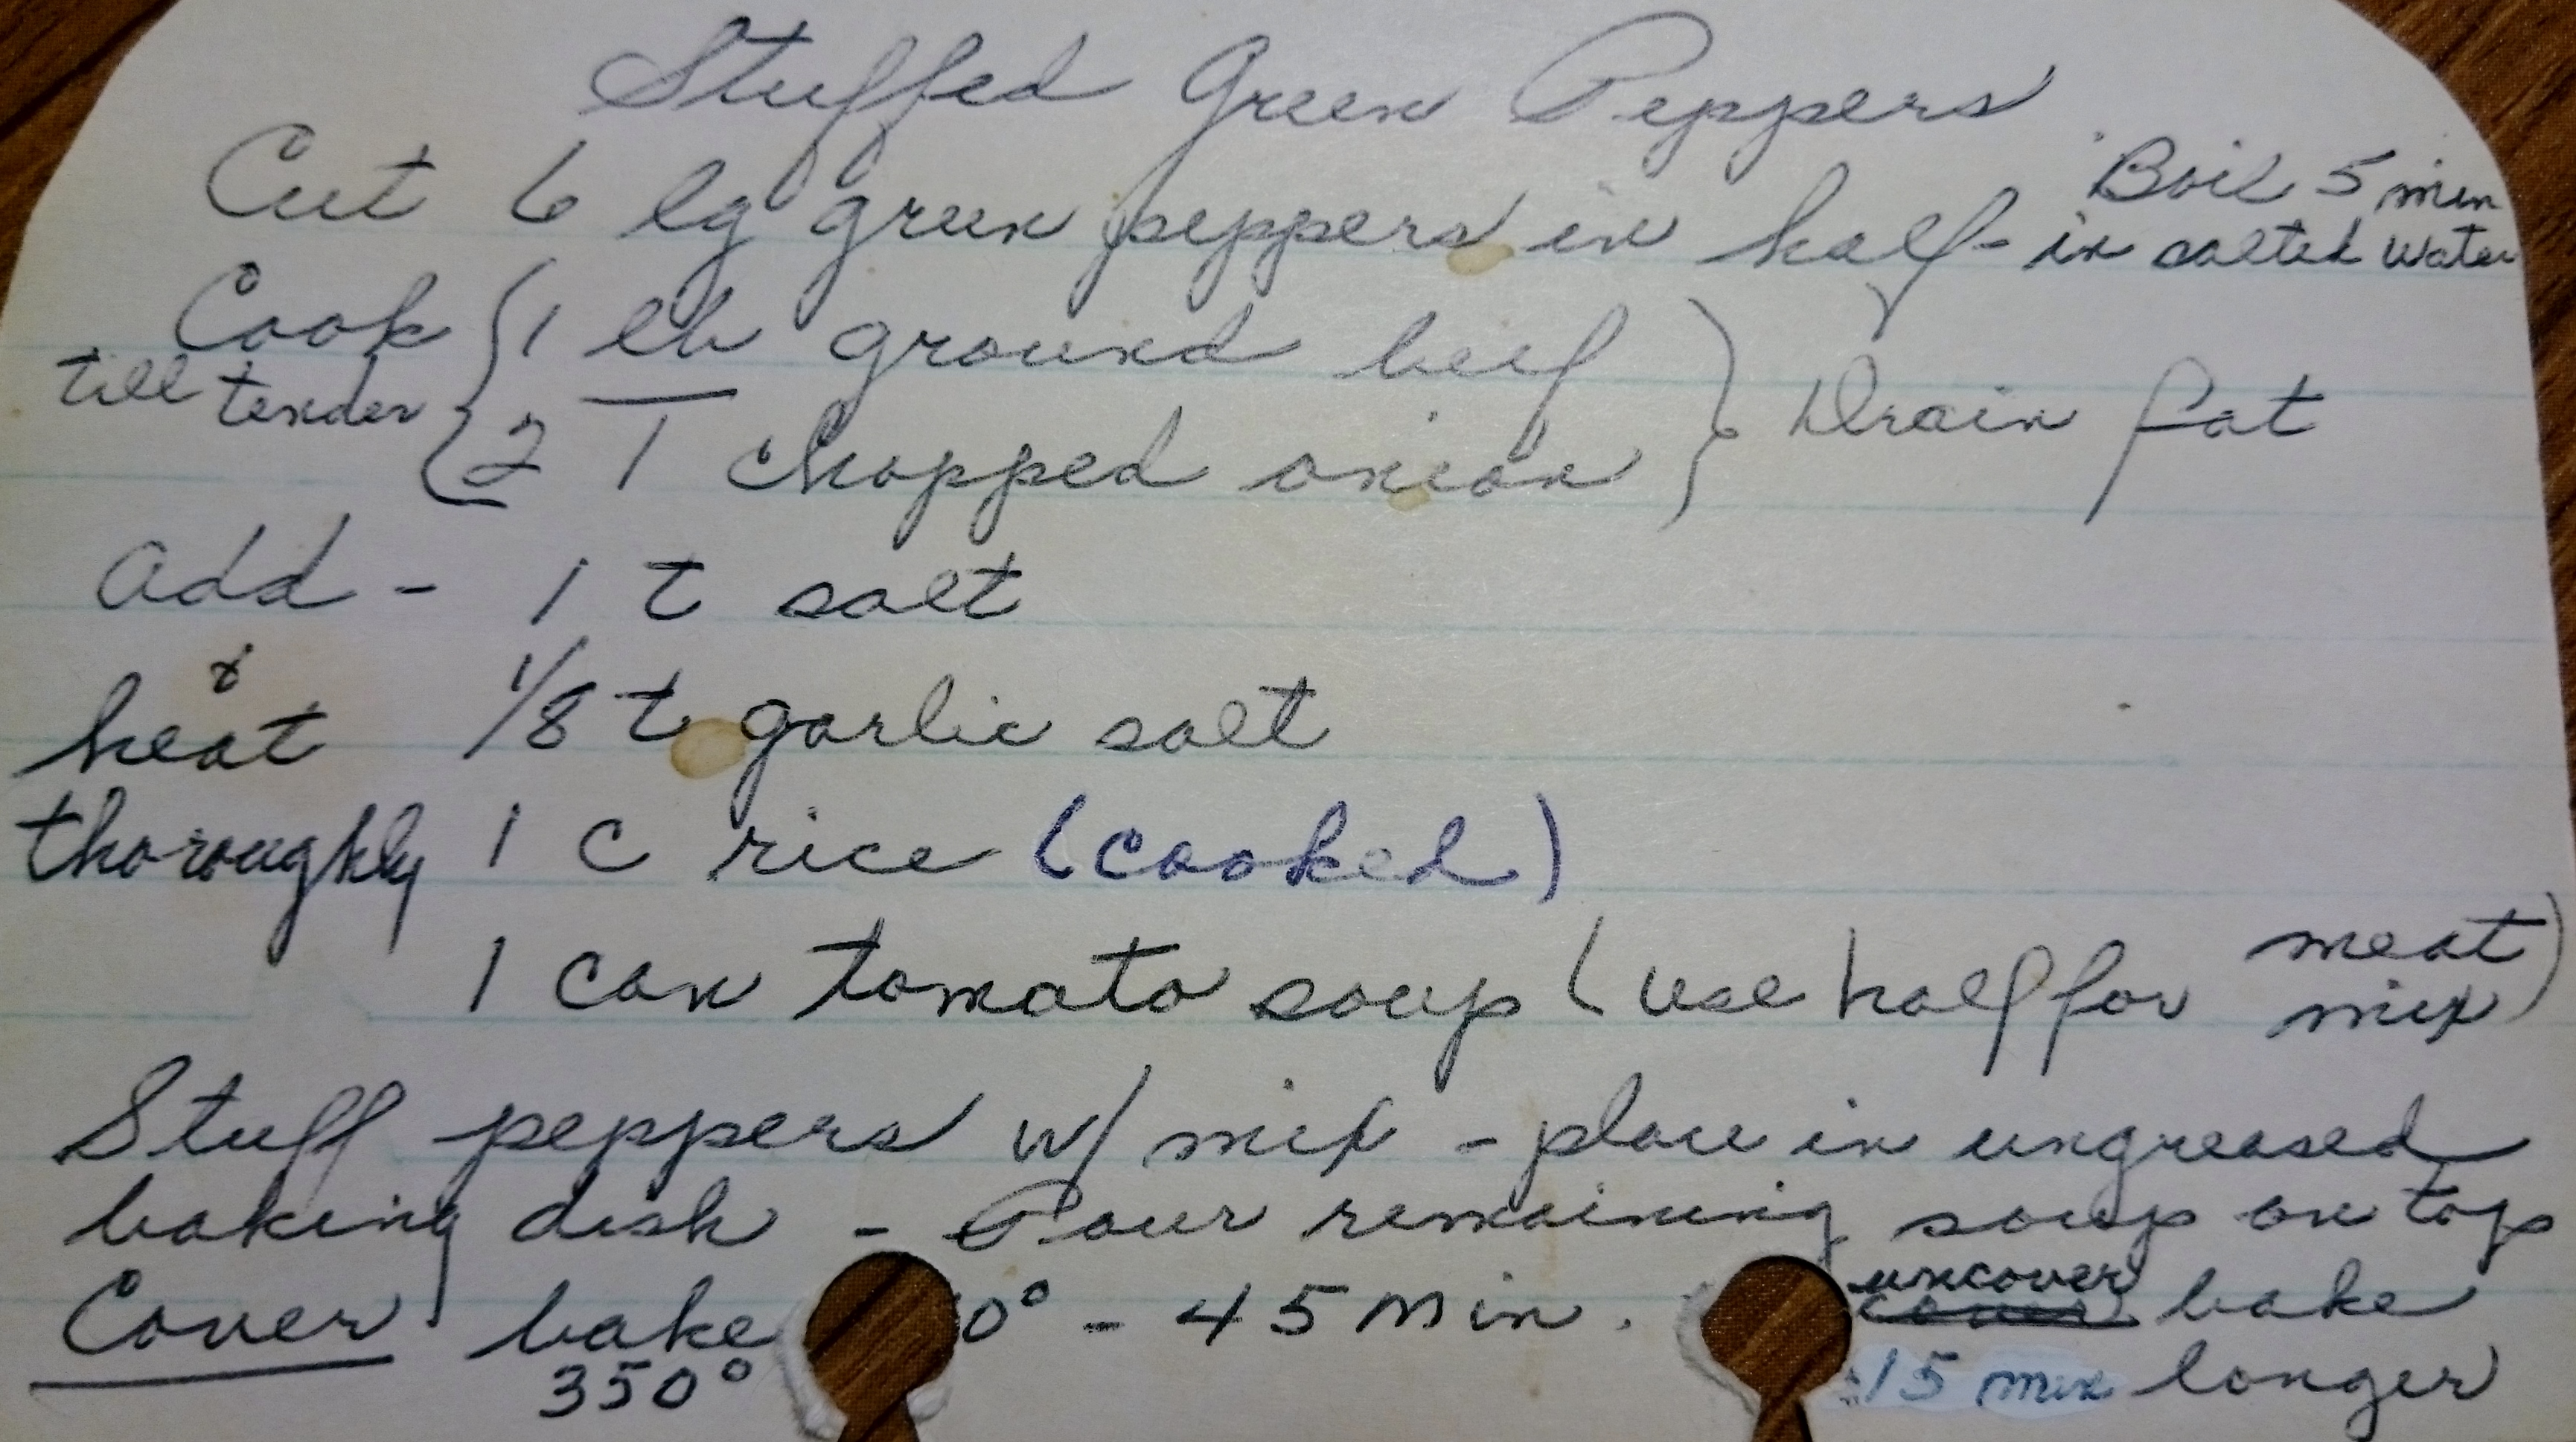 Stuffed Green Peppers
Cut 6 lg green peppers in half - Boil 5 min in salted water
Cook till tender { 1 lb ground beef } Drain fat
2 T chopped onion
Add - 1 t salt
& heat 1/8 t garlic salt
thoroughly 1 c rice (cooked)
1 can tomato soup (use half for meat mix)
Stuff peppers w/ mix - place in ungreased
baking dish - Pour remaining soup on top
Cover bake 0° - 45 min. uncover bake
350° 15 min longer